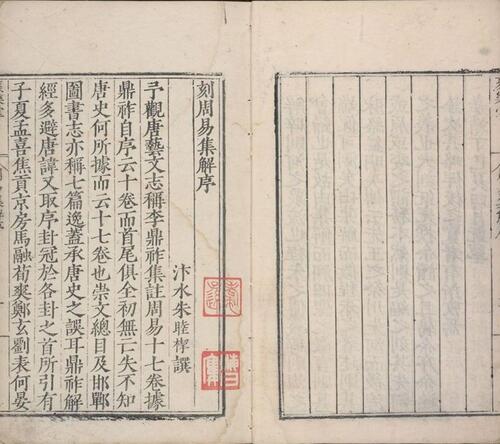 刻周易集解序
汴水朱睦㮮撰
予觀唐藝文志稱李鼎祚集註周易十七卷據
鼎祚自序云十卷而首尾俱全初無亡失不知
唐史何所據而云十七卷也崇文總目及邯鄲
圖書志亦稱七篇逸蓋承唐史之誤耳鼎祚解
經多避唐諱又取序卦冠於各卦之首所引有
子夏孟喜焦貢京房馬融荀爽鄭玄劉表何晏